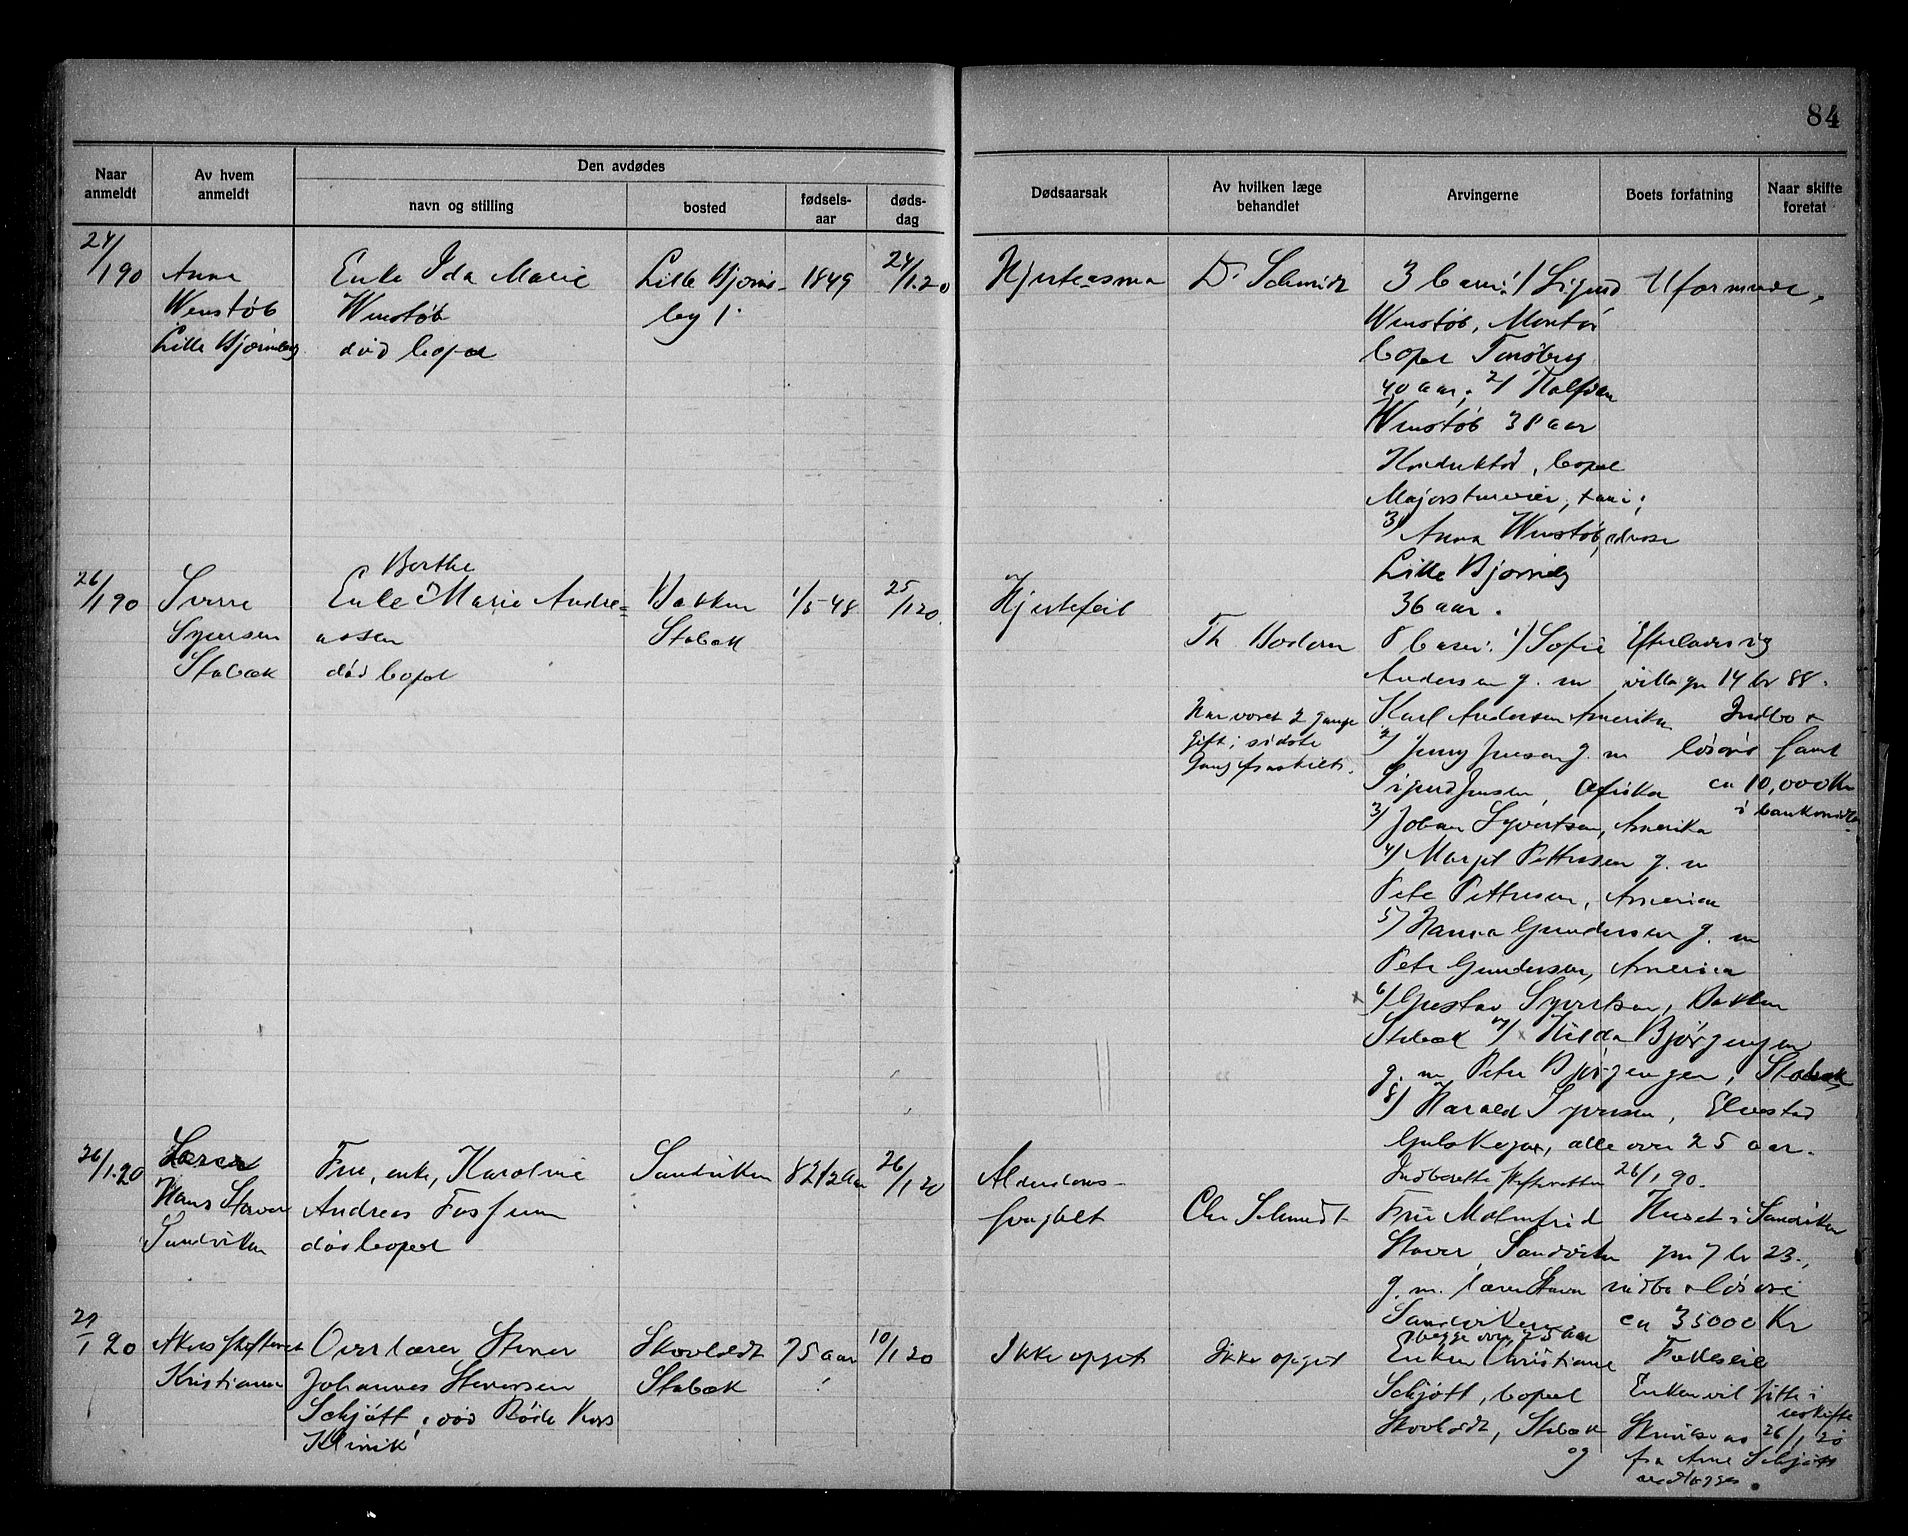 84
Naar anmeldt
Av hvem anmeldt
Den avdødes
navn og stilling
bosted
fødselsaar
dødsdag
Dødsaarsak
Av hvilken læge behandlet
Arvingerne
Boets forfatning
Naar skifte foretat
24/1 90
Anna
Wenstøb
Lille Bjørnsby
Enke Ida Marie
Wenstøb
død bopel
Lille Bjørns-
by
1849
24/1.20
Hjerteasma
Dr Schmidt
3 barn: 1/ Sigurd
Wenstøb, Montør
bopel Tønsberg
40 aar; 2/ Halfdan
Wenstøb 38 aar
Konduktør, bopel
Majorstuveien
3) Anna Wenstøb,
Lille Bjørnsby
36 aar.
Uformuende.
26/1 90
Sverre
Syversen
Stabæk
Berthe
Enke Marie Andre=
assen
død bopel
Bakken
Stabæk
1/5-48
25/1 20.
Hjertefeil
Th Bodom
Har været 2 gange
gift; sidste
Gang fraskilt.
8 barn: 1) Sofie
Andersen g. m
Karl Andersen Amerika
2) Jenny Jensen g. m
Sigurd Jensen, Afrika
3) Johan Syvertsen, Amerika
4) Margit Pettersen g. m
Peter Pettersen, Amerika
5) Hanna Gundersen g. m
Peter Gundersen, Amerika
x 6) Gustav Syvertsen, Bakken
Stabæk 7) x Hilda Bjørgengen
g. m Peter Bjørgengen, Stabæk
8) Harald Syversen, Elvestad
alle over 25 aar.
Indberettet skifteretten 26/1 90.
Efterlader sig
villa gn 14 br 88.
Indbo &
løsøre samt
ca 10,000 Kr
i bankmidler
26/1.20
Lærer
Hans Staver
Sandviken
Fru, enke, Karoline
Andrea Fossum
død bopel
Sandviken
82 1/2 Aar
26/1 20
Alderdoms-
svaghet
Chr Schmidt
Fru Malmfrid
Staver, Sandviken
g. m. lærer Staver
Sandviken
begge over 25 aar
Huset i Sandviken
gn 7 br 23.,
indbo & løsøre
ca 35000 Kr
29/1 20
Akers skifteret
Kristiania
Overlærer Stener
Johannes Stenersen
Schjøtt; død Røde Kors
Klinik
Skovholdt
Stabæk
75 aar
10/1 20
Ikke opgit
Ikke opgit
Enken Christiane
Schjøtt, bopel
Skovholdt, Stabæk
og
Fælleseie
Enken vil sitte i
uskifte
Skrivelse av 26/1 20
fra Arne Schjøtt
vedlægges.